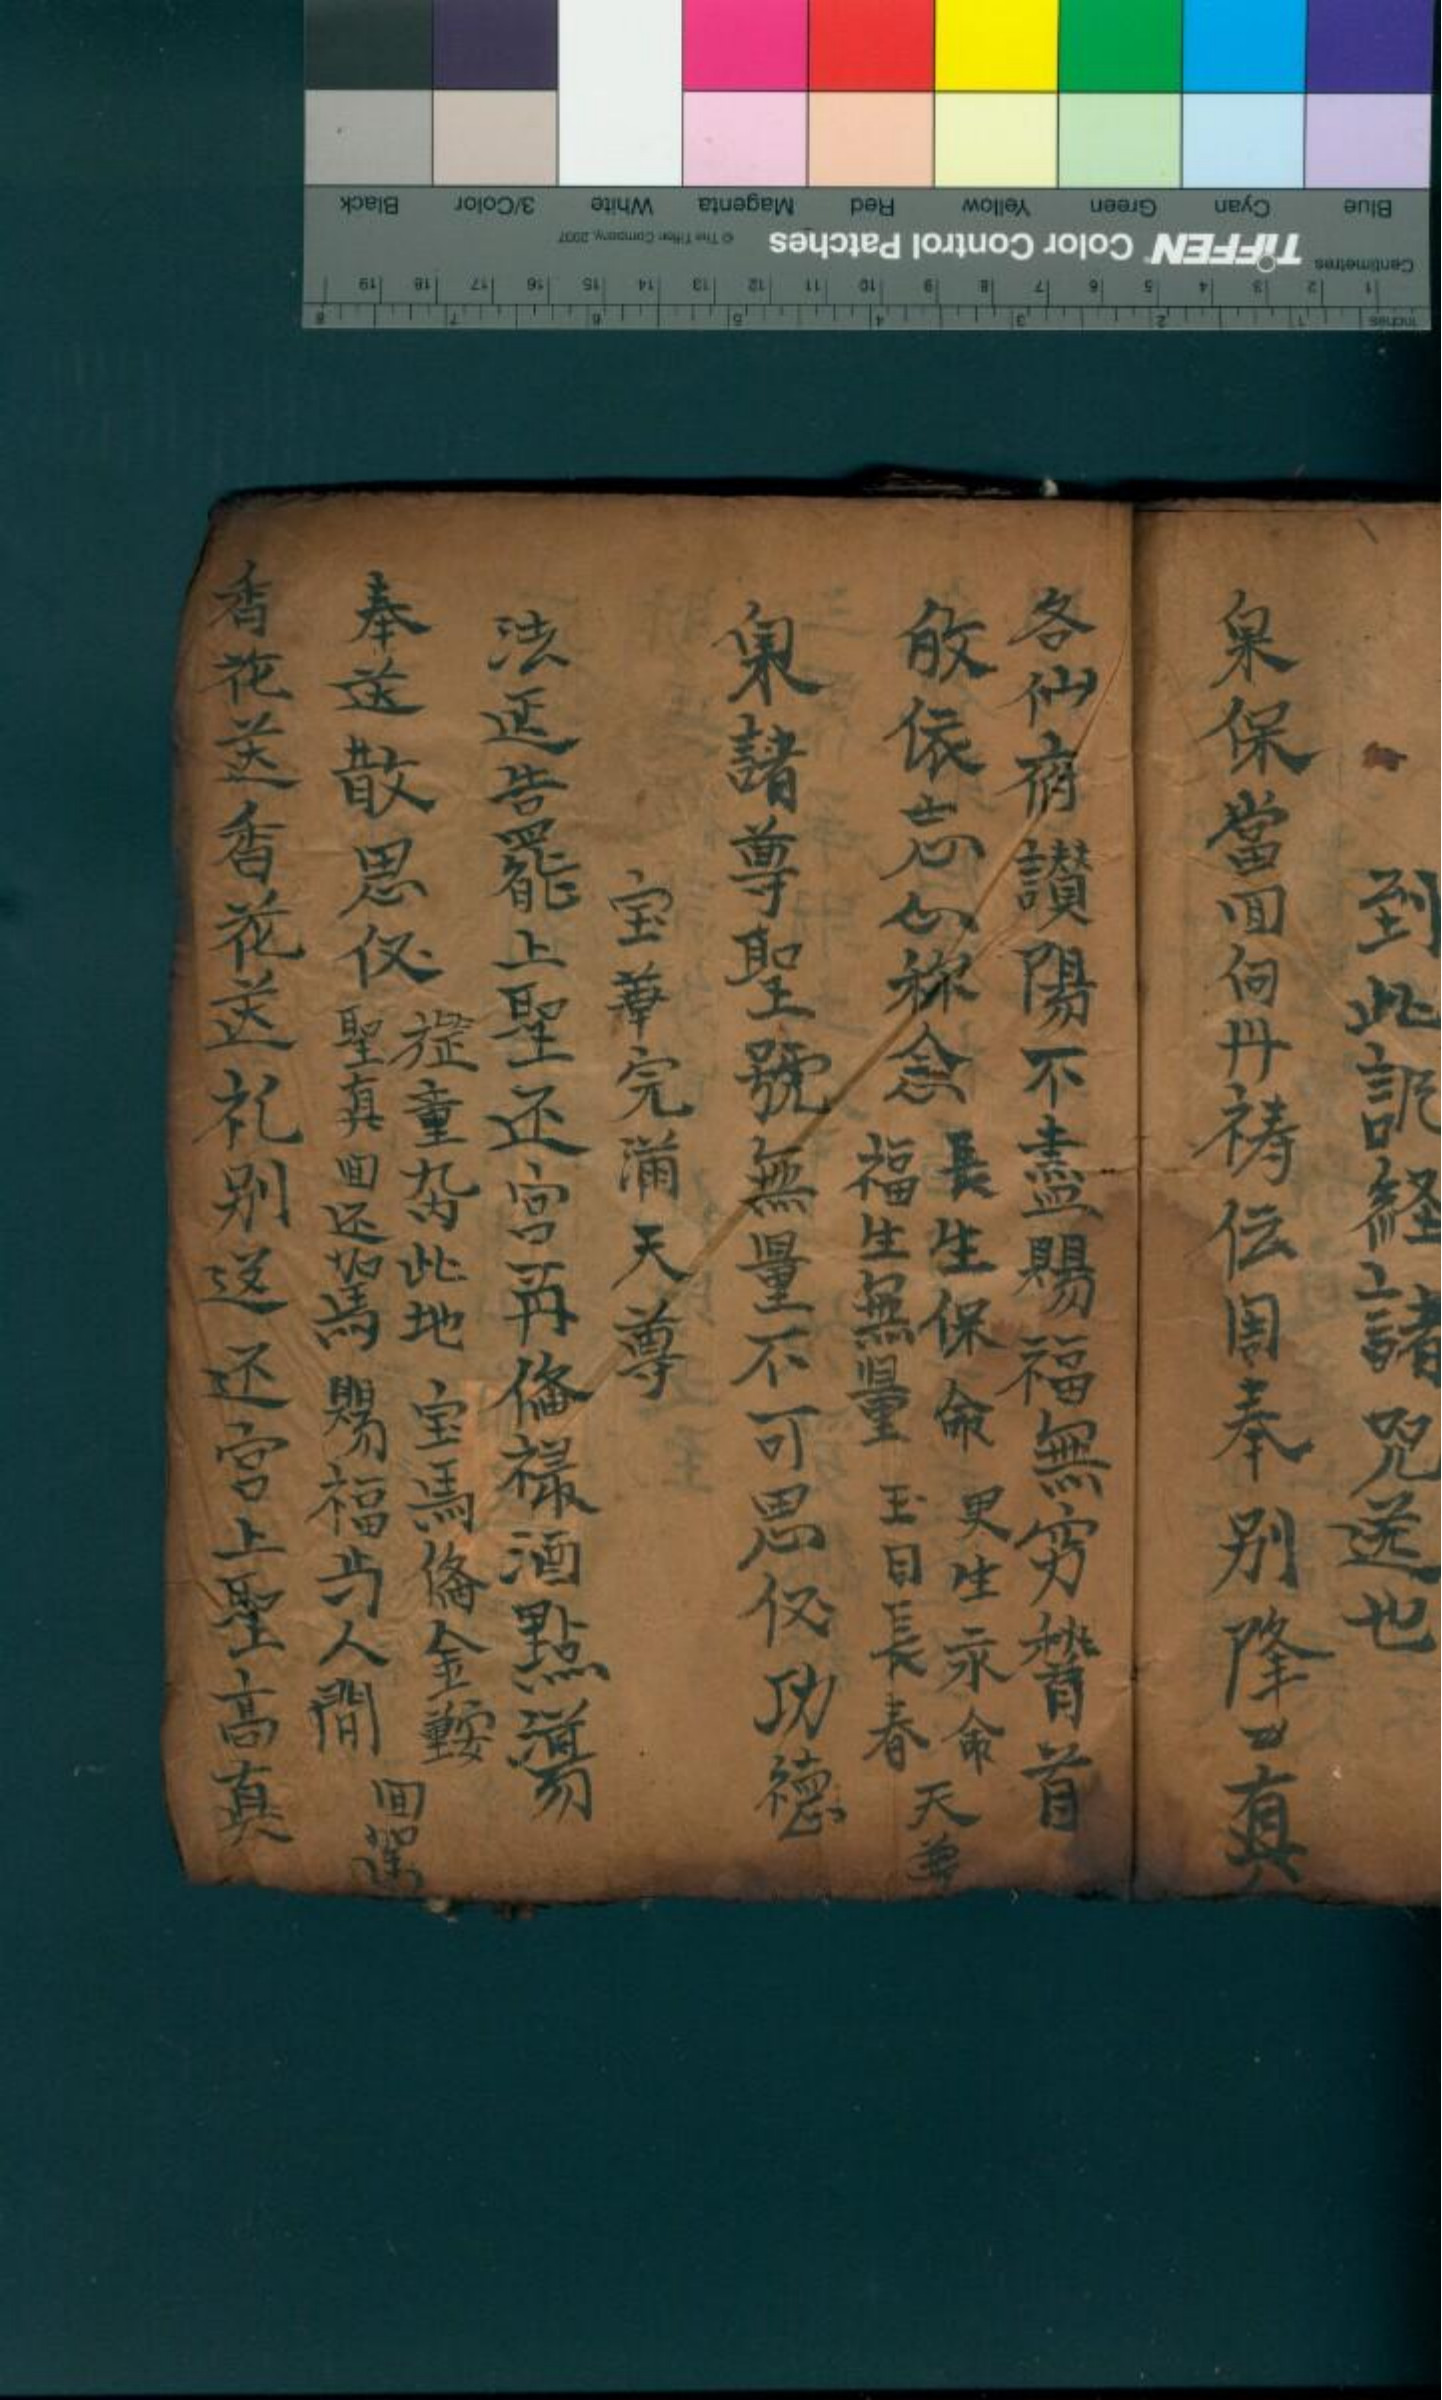 到此誦経諸咒送也
保當回向丹祷伝周奉别隆真
各仙府讃陽不盡賜福無穷稽首
皈依志心称念 長生保命 福生無量 更生永命 玉目長春 天尊
諸尊聖號無量不可思仪功德
宝華完滿天尊
法延告罷上聖还宮再俻禄酒點湯
奉送散思仪 童此地 宝馬俻金鞍
聖真回还 賜福人間 回駕
香花送香花送礼别送还宮上聖高真
Blue Cyan Green Yellow Red Magenta White 3/Color Black
TIFFEN Color Control Patches © The Tiffen Company, 2007
Centimetres 1 2 3 4 5 6 7 8 9 10 11 12 13 14 15 16 17 18 19
Inches 1 2 3 4 5 6 7 8